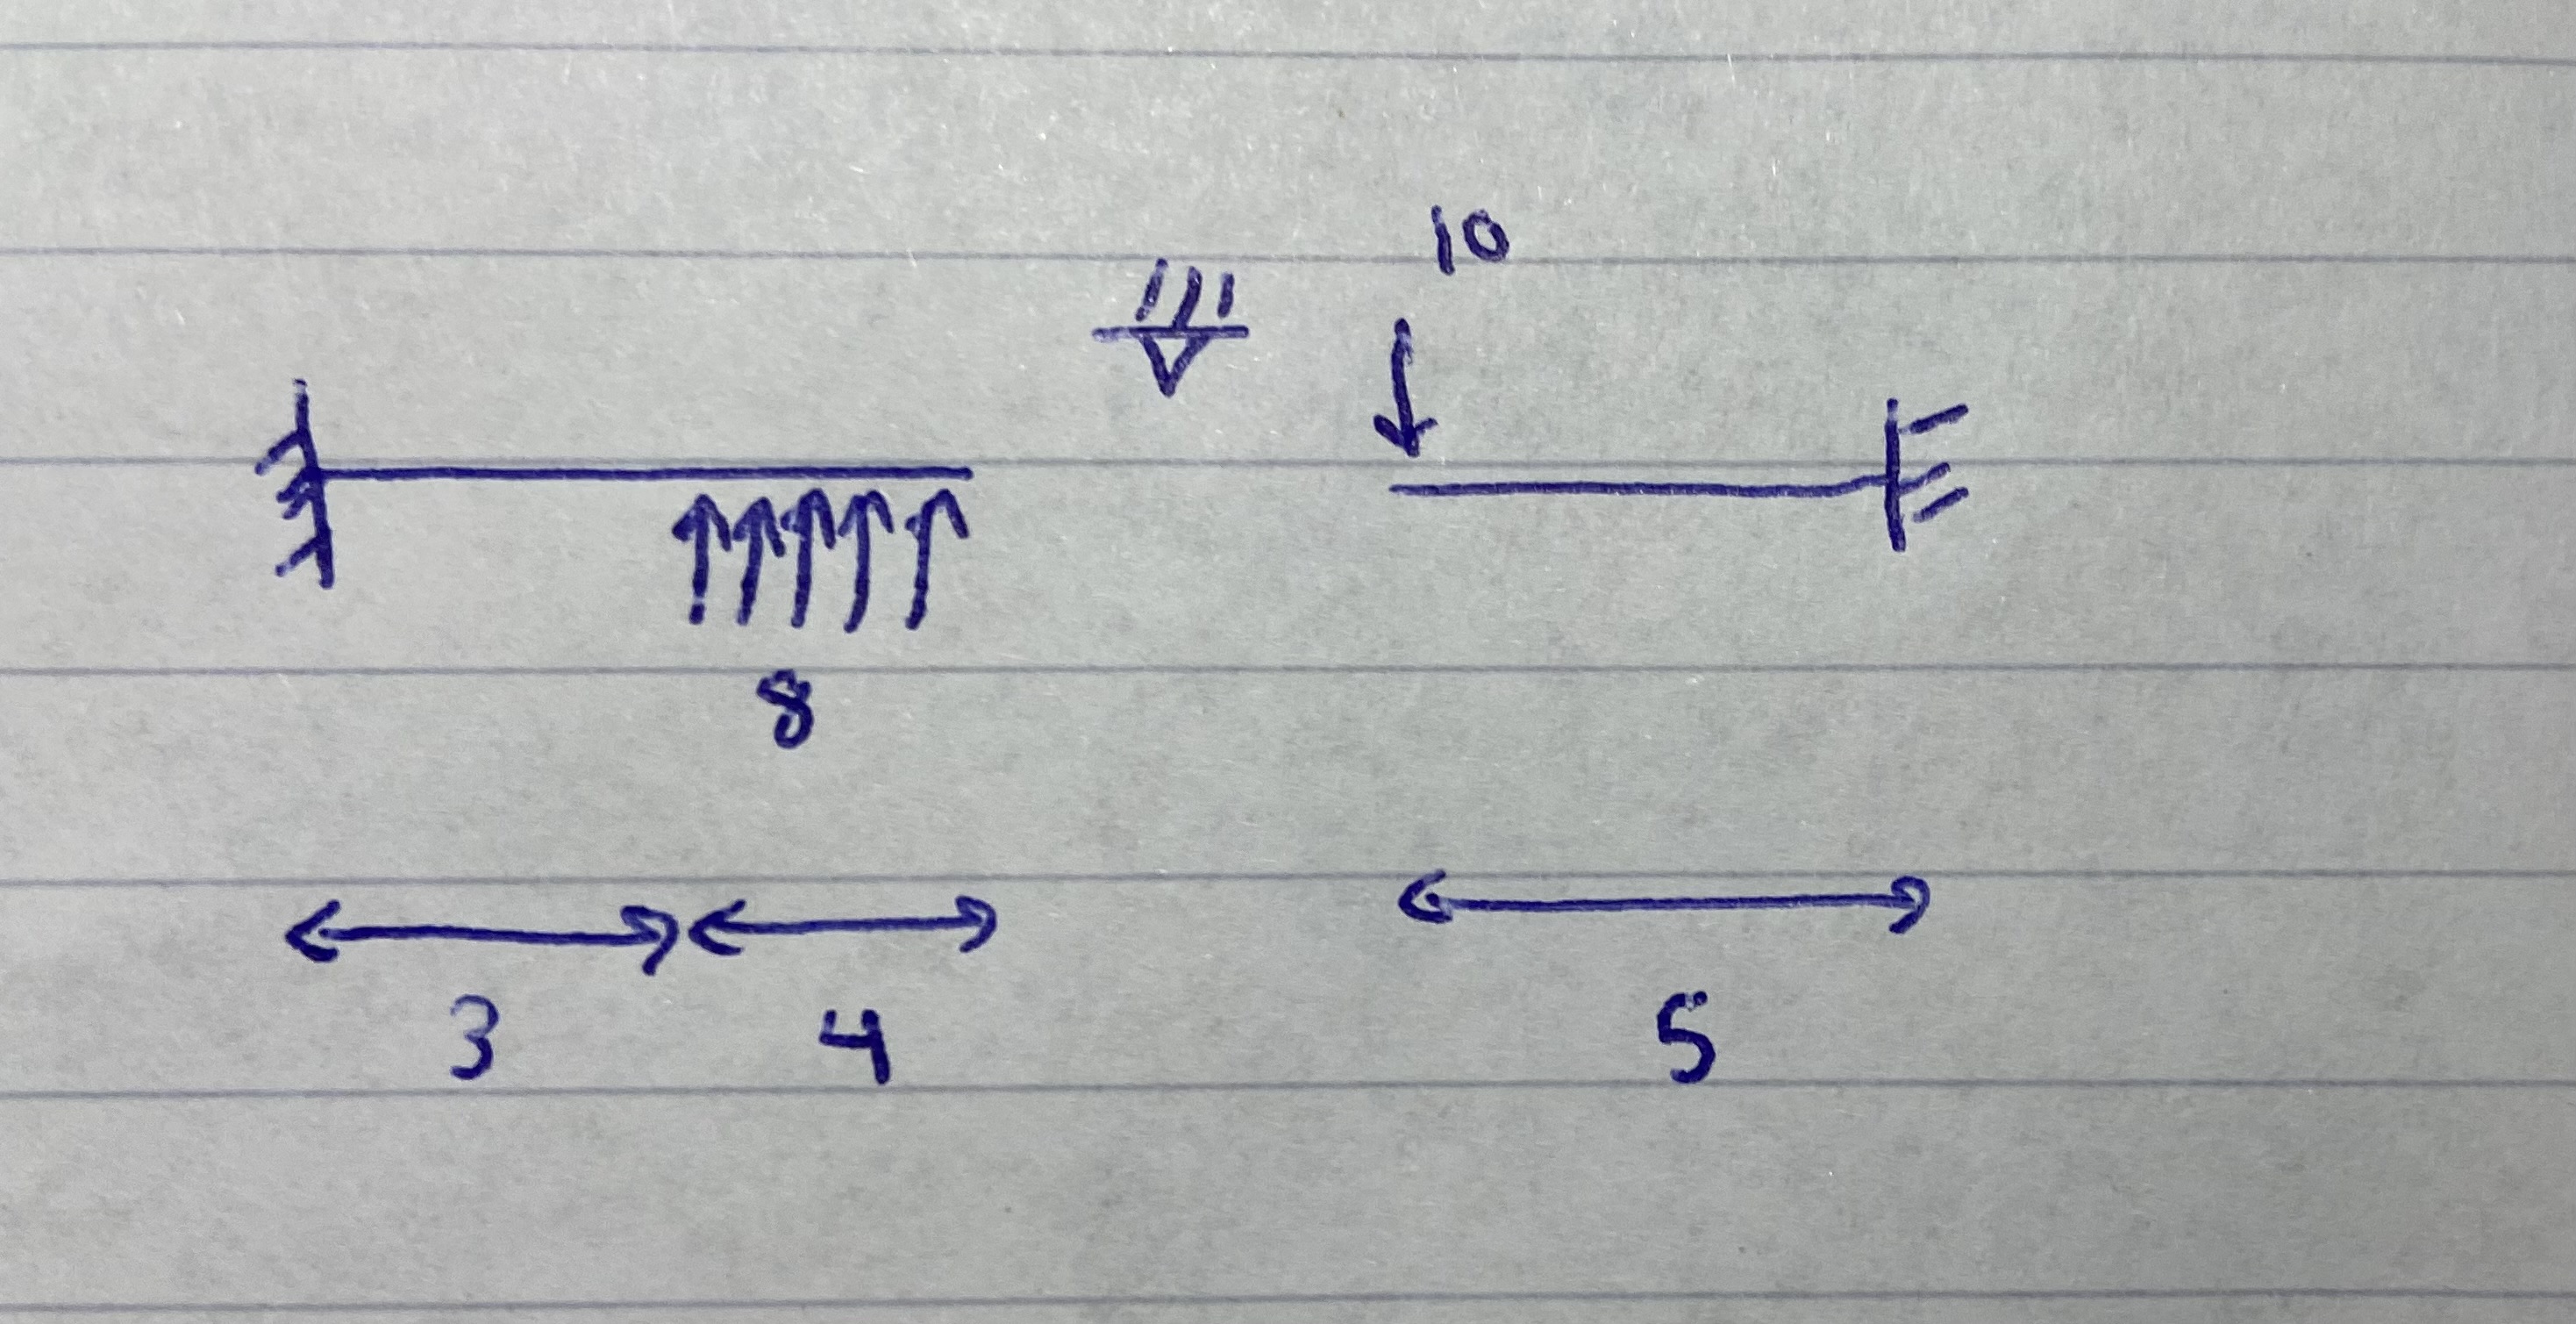 10
8
3 4 5